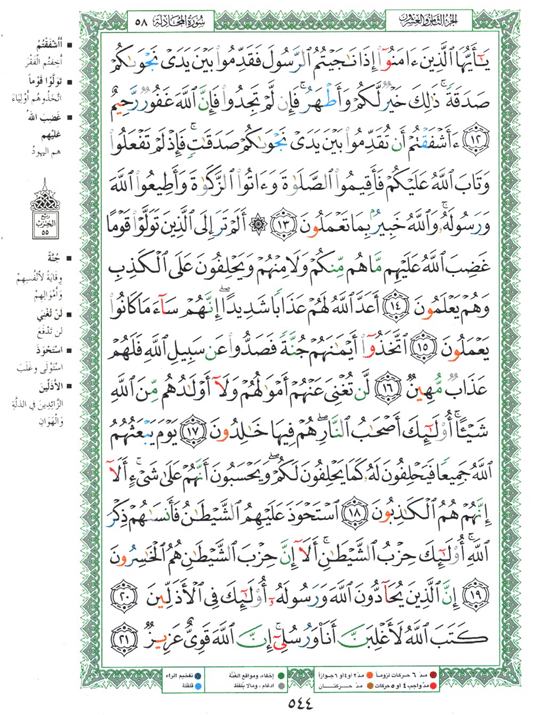 الجزء الثامن والعشرون
سورة المجادلة ٥٨
يَـٰٓأَيُّهَا ٱلَّذِينَ ءَامَنُوٓا۟ إِذَا نَـٰجَيْتُمُ ٱلرَّسُولَ فَقَدِّمُوا۟ بَيْنَ يَدَىْ نَجْوَىٰكُمْ
صَدَقَةً ۚ ذَٰلِكَ خَيْرٌ لَّكُمْ وَأَطْهَرُ ۚ فَإِن لَّمْ تَجِدُوا۟ فَإِنَّ ٱللَّهَ غَفُورٌ رَّحِيمٌ
١٢ ءَأَشْفَقْتُمْ أَن تُقَدِّمُوا۟ بَيْنَ يَدَىْ نَجْوَىٰكُمْ صَدَقَـٰتٍ ۚ فَإِذْ لَمْ تَفْعَلُوا۟
وَتَابَ ٱللَّهُ عَلَيْكُمْ فَأَقِيمُوا۟ ٱلصَّلَوٰةَ وَءَاتُوا۟ ٱلزَّكَوٰةَ وَأَطِيعُوا۟ ٱللَّهَ
وَرَسُولَهُۥ ۚ وَٱللَّهُ خَبِيرٌۢ بِمَا تَعْمَلُونَ ١٣ ۞ أَلَمْ تَرَ إِلَى ٱلَّذِينَ تَوَلَّوْا۟ قَوْمًا
غَضِبَ ٱللَّهُ عَلَيْهِم مَّا هُم مِّنكُمْ وَلَا مِنْهُمْ وَيَحْلِفُونَ عَلَى ٱلْكَذِبِ
وَهُمْ يَعْلَمُونَ ١٤ أَعَدَّ ٱللَّهُ لَهُمْ عَذَابًا شَدِيدًا ۖ إِنَّهُمْ سَآءَ مَا كَانُوا۟
يَعْمَلُونَ ١٥ ٱتَّخَذُوٓا۟ أَيْمَـٰنَهُمْ جُنَّةً فَصَدُّوا۟ عَن سَبِيلِ ٱللَّهِ فَلَهُمْ
عَذَابٌ مُّهِينٌ ١٦ لَّن تُغْنِىَ عَنْهُمْ أَمْوَٰلُهُمْ وَلَآ أَوْلَـٰدُهُم مِّنَ ٱللَّهِ
شَيْـًٔا ۚ أُو۟لَـٰٓئِكَ أَصْحَـٰبُ ٱلنَّارِ ۖ هُمْ فِيهَا خَـٰلِدُونَ ١٧ يَوْمَ يَبْعَثُهُمُ
ٱللَّهُ جَمِيعًا فَيَحْلِفُونَ لَهُۥ كَمَا يَحْلِفُونَ لَكُمْ ۖ وَيَحْسَبُونَ أَنَّهُمْ عَلَىٰ شَىْءٍ ۚ أَلَآ
إِنَّهُمْ هُمُ ٱلْكَـٰذِبُونَ ١٨ ٱسْتَحْوَذَ عَلَيْهِمُ ٱلشَّيْطَـٰنُ فَأَنسَىٰهُمْ ذِكْرَ
ٱللَّهِ ۚ أُو۟لَـٰٓئِكَ حِزْبُ ٱلشَّيْطَـٰنِ ۚ أَلَآ إِنَّ حِزْبَ ٱلشَّيْطَـٰنِ هُمُ ٱلْخَـٰسِرُونَ
١٩ إِنَّ ٱلَّذِينَ يُحَآدُّونَ ٱللَّهَ وَرَسُولَهُۥٓ أُو۟لَـٰٓئِكَ فِى ٱلْأَذَلِّينَ ٢٠
كَتَبَ ٱللَّهُ لَأَغْلِبَنَّ أَنَا۠ وَرُسُلِىٓ ۚ إِنَّ ٱللَّهَ قَوِىٌّ عَزِيزٌ ٢١
أأشفقتم
أخفتم الفقر
تولّوا قوما
اتخذوهم أولياء
غضب الله
عليهم
هم اليهود
ربع
الحزب
٥٥
جُنّة
وقاية لأنفسهم
وأموالهم
لن تغني
لن تدفع
استحوذ
استولى وغلب
الأذلين
الزائدين في الذلة
والهوان
مدّ ٦ حركات لزوماً
مدّ ٢ أو ٤ أو ٦ جوازاً
إخفاء، ومواقع الغنة
تفخيم الراء
مدّ واجب ٤ أو ٥ حركات
مدّ حركتان
إدغام، وما لا يلفظ
قلقلة
٥٤٤